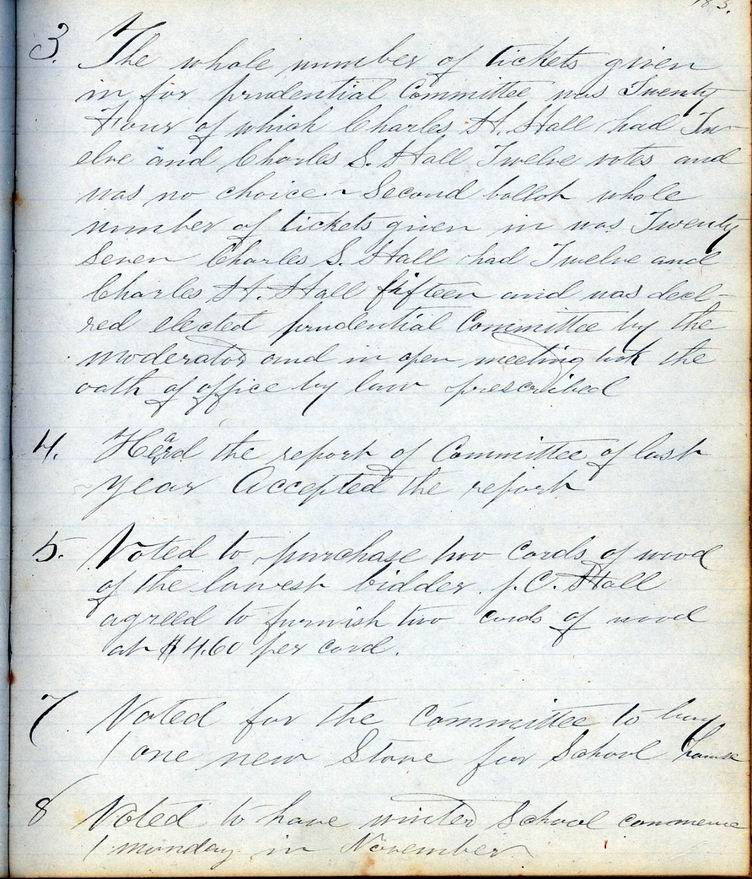 3. The whole number of tickets given
in for prudential Committee was Twenty
Four of which Charles H. Hall had Tw-
elve and Charles S. Hall Twelve votes and
was no choice ~ Second ballot whole
number of tickets given in was Twenty
Seven Charles S. Hall had Twelve and
Charles H. Hall fifteen and was decl-
red elected prudential Committee by the
moderator and in open meeting took the
oath of office by law prescribed
4. Heard the report of Committee of last
year Accepted the report
5. Voted to purchase two Cords of wood
of the lowest bidder. J. C. Hall
agreed to furnish two cords of wood
at $4.60 per cord.
7 Voted for the Committee to buy
1 one new Stove for School house
8 Voted to have winter School commence
1 monday in November